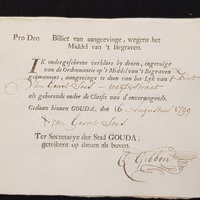 Pro Deo. Billiet van aangeevinge, wegens het
Middel van 't Begraven.
IK ondergeschreve verklare by deezen, ingevolge
van de Ordonnantie op 't Middel van 't Begraven
geëmaneert, aangeevinge te doen van het Lyk van 't kint
van Gerrit
als gehorende onder de Classis van d'onvermogende.
Gedaan binnen GOUDA, den 16 Augustus 1799
Gerrit
Ter Secretarye der Stad GOUDA,
geteikent op datum als boven.